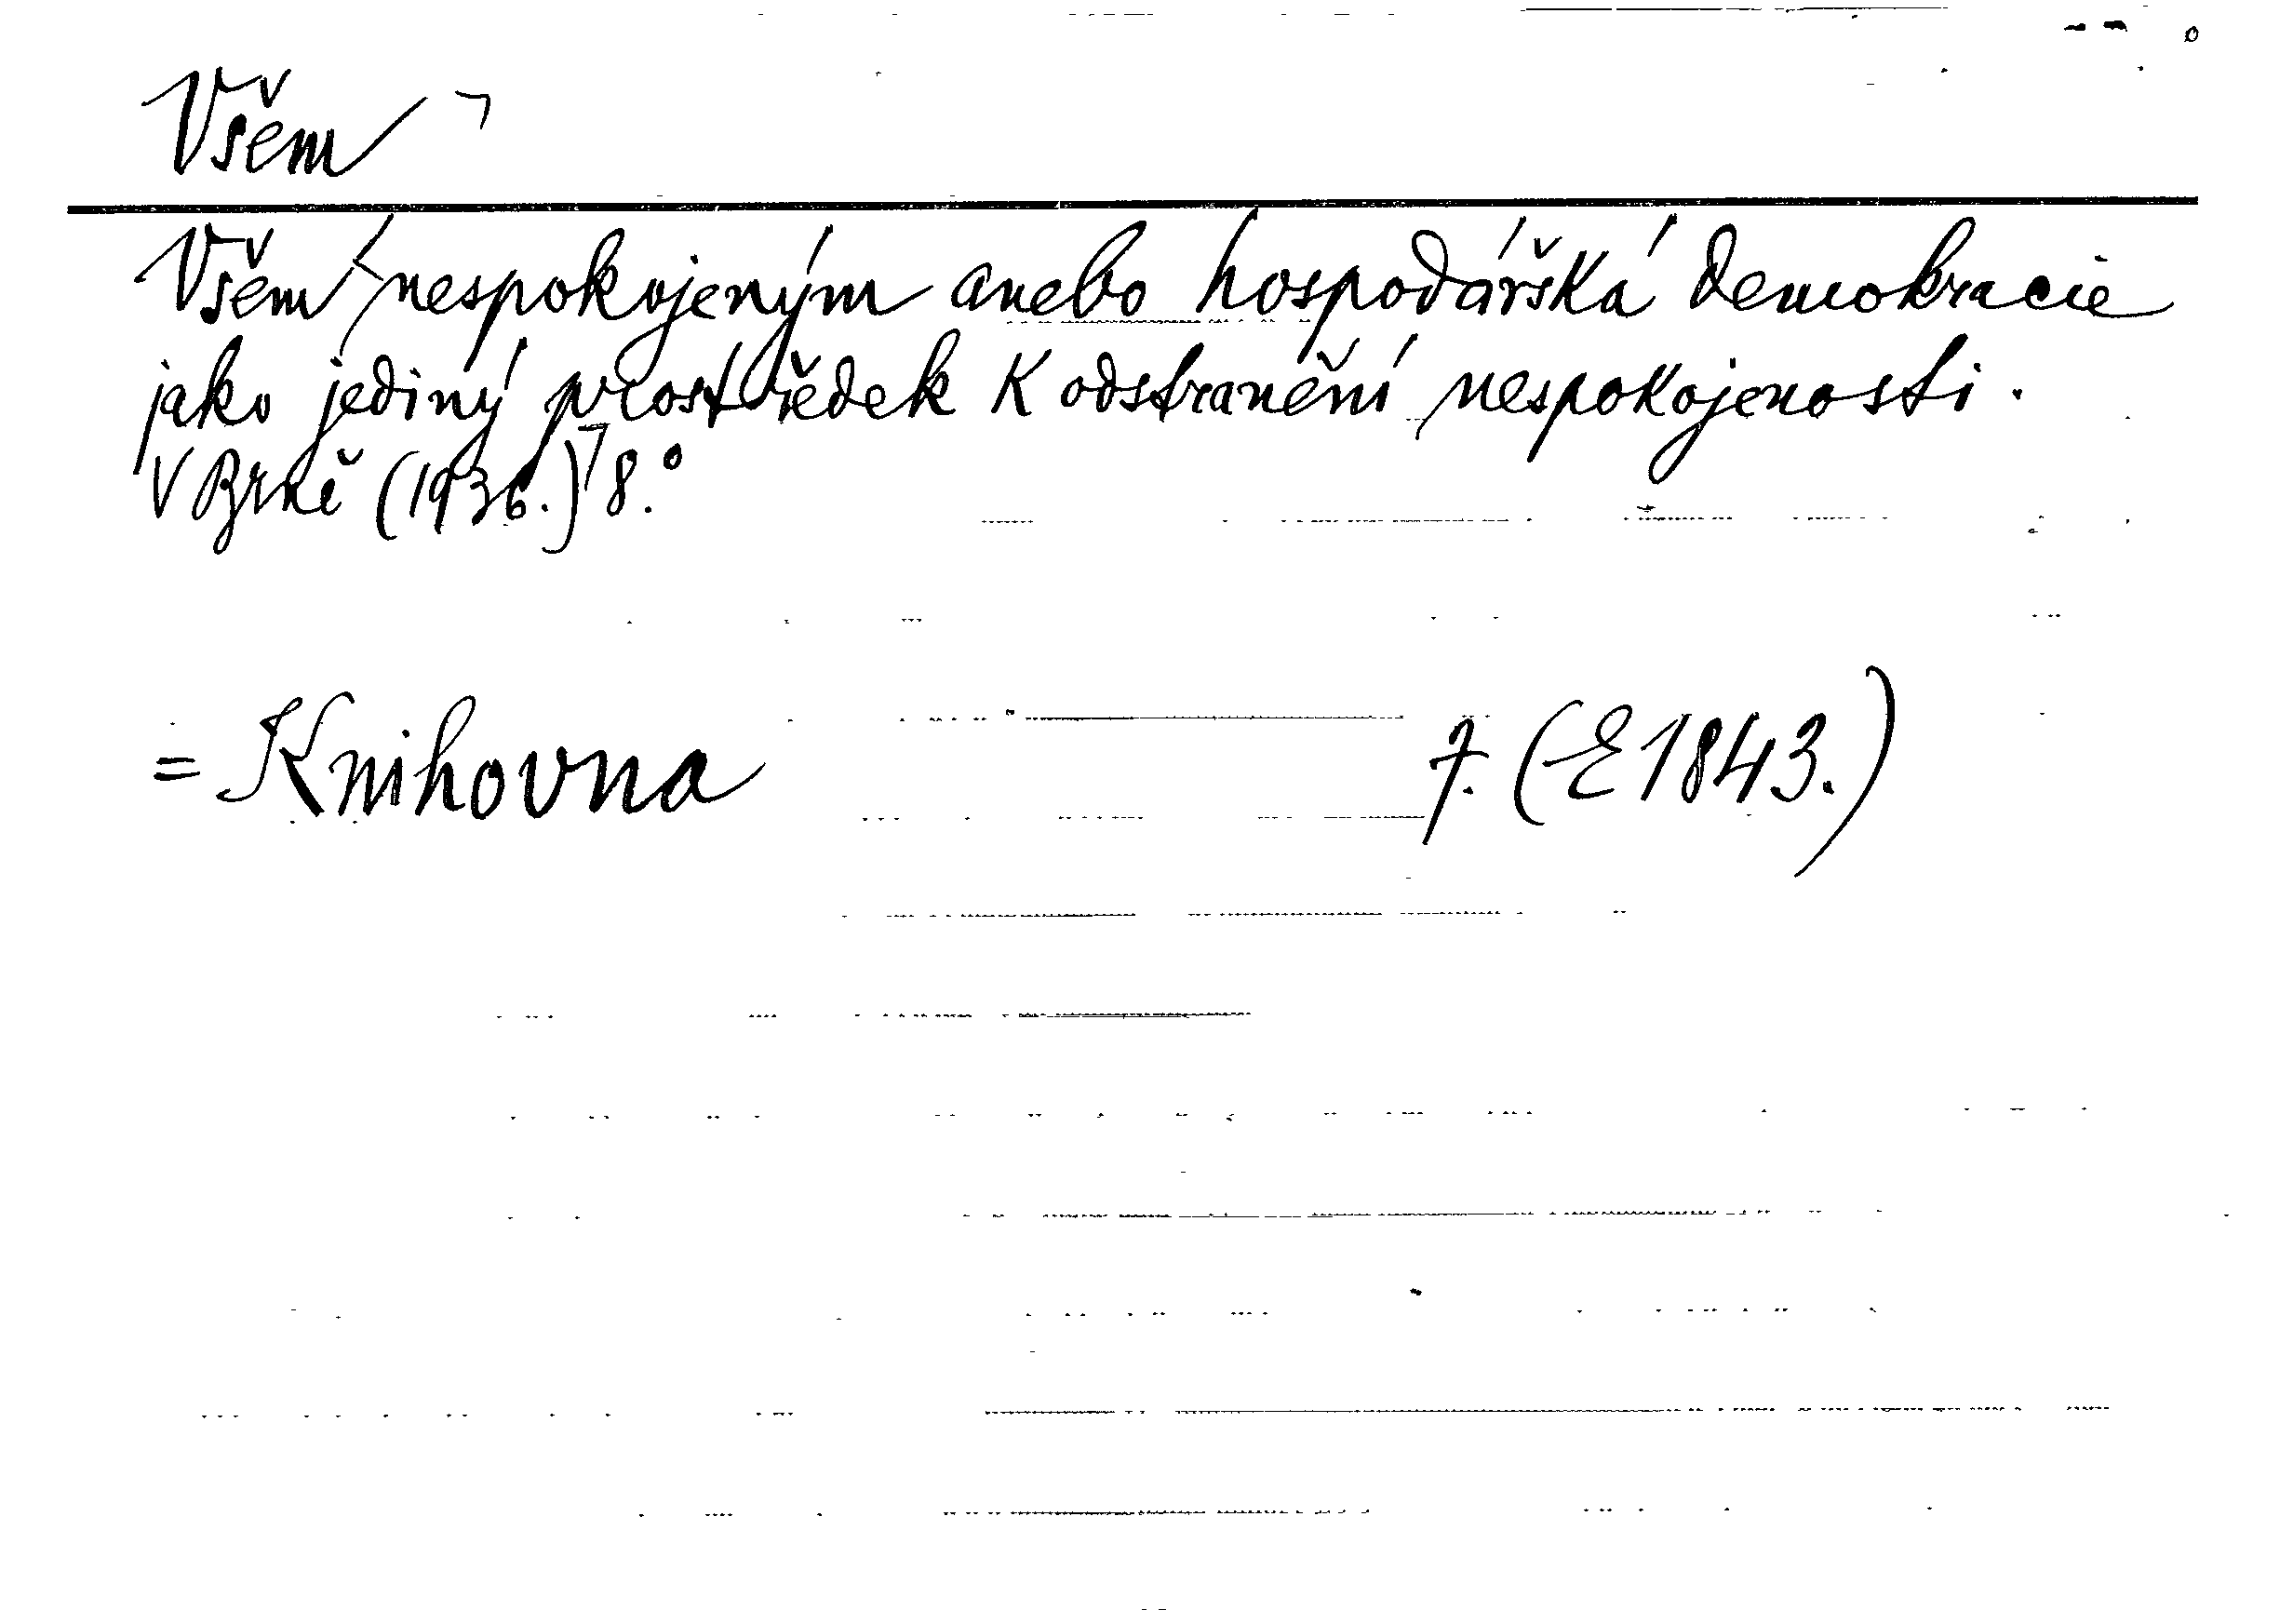 Všem ┐
Všem nespokojeným anebo hospodářská demokracie
jako jediný prostředek k odstranění nespokojenosti.
V Brně (1936.) 8.°
= Knihovna 7. (E 1843.)